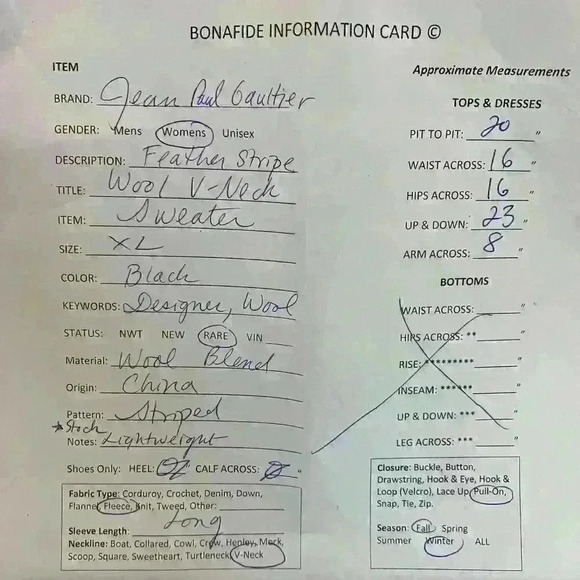 BONAFIDE INFORMATION CARD ©
ITEM
BRAND: Jean Paul Gaultier
GENDER: Mens Womens Unisex
DESCRIPTION: Feather Stripe
TITLE: Wool V-Neck
ITEM: Sweater
SIZE: XL
COLOR: Black
KEYWORDS: Designer, Wool
STATUS: NWT NEW RARE VIN
Material: Wool Blend
Origin: China
Pattern: Striped
*Stock
Notes: Lightweight
Shoes Only: HEEL: CALF ACROSS: "
Fabric Type: Corduroy, Crochet, Denim, Down,
Flannel, Fleece, Knit, Tweed, Other:
Sleeve Length: Long
Neckline: Boat, Collared, Cowl, Crew, Henley, Mock,
Scoop, Square, Sweetheart, Turtleneck, V-Neck
Approximate Measurements
TOPS & DRESSES
PIT TO PIT: 20 "
WAIST ACROSS: 16 "
HIPS ACROSS: 16 "
UP & DOWN: 23 "
ARM ACROSS: 8 "
BOTTOMS
WAIST ACROSS: "
HIPS ACROSS: ** "
RISE: ********* "
INSEAM: ****** "
UP & DOWN: *** "
LEG ACROSS: *** "
Closure: Buckle, Button,
Drawstring, Hook & Eye, Hook &
Loop (Velcro), Lace Up, Pull-On,
Snap, Tie, Zip.
Season: Fall Spring
Summer Winter ALL